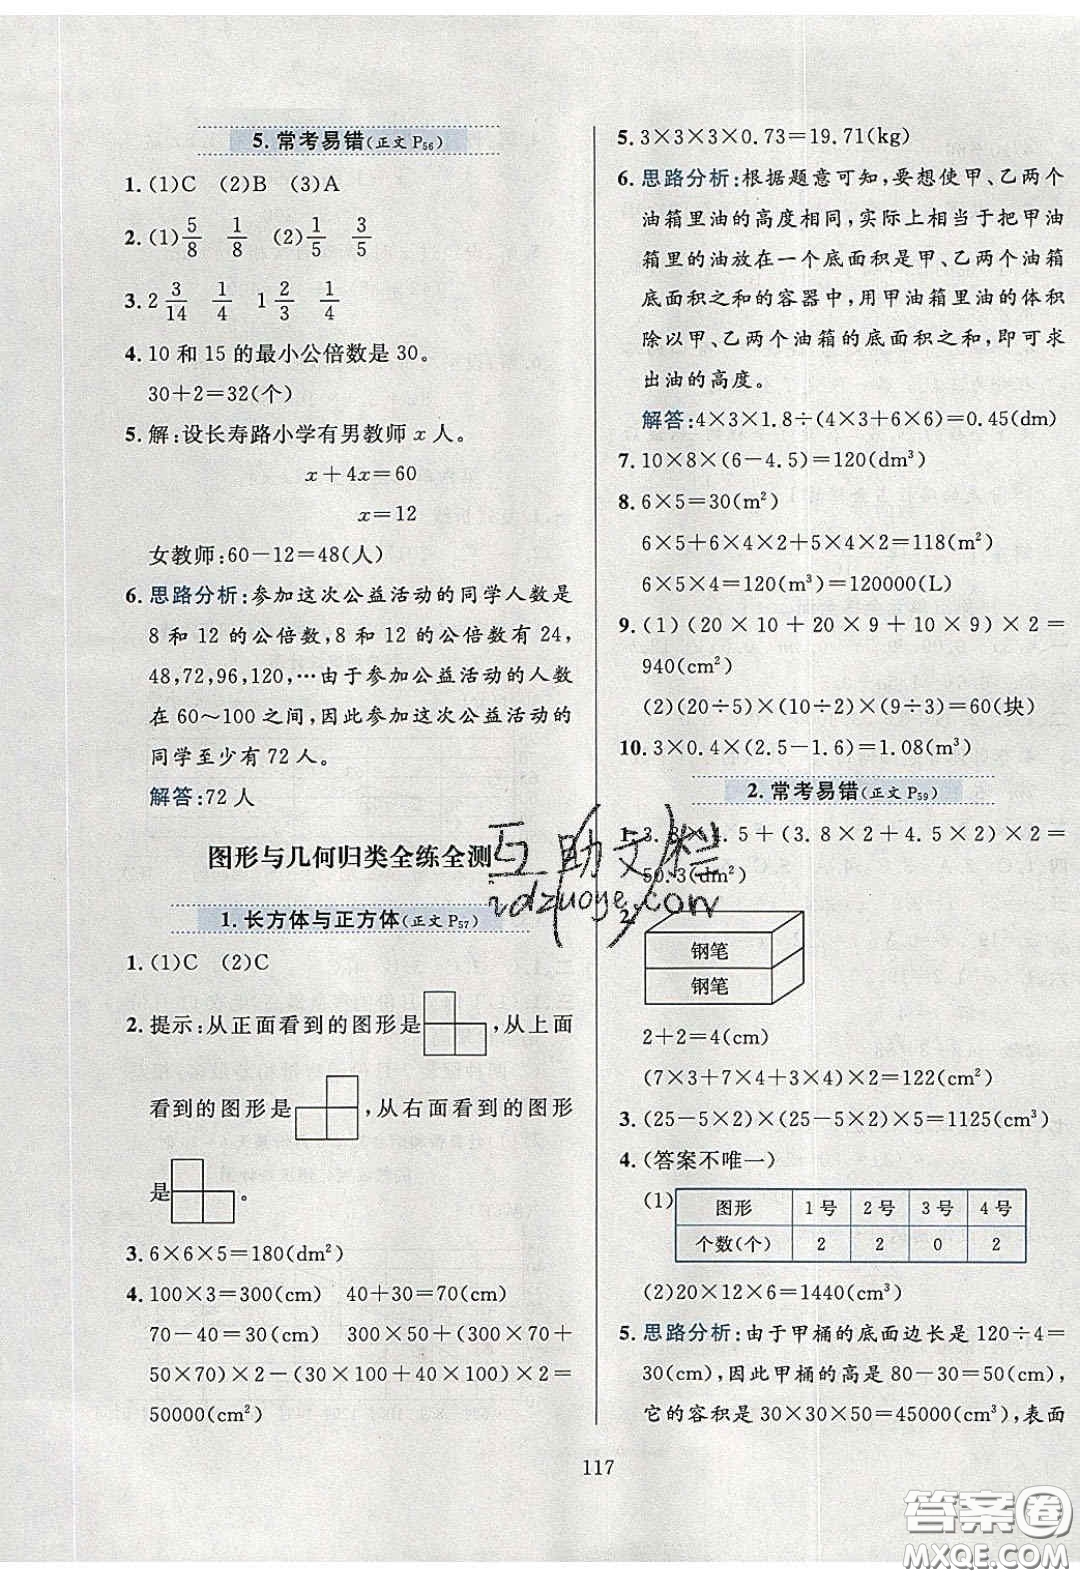 5. 常考易错(正文 P₅₆)
1. (1)C (2)B (3)A
2. (1) 5/8 1/8 (2) 1/5 3/5
3. 2 3/14 1/4 1 2/3 1/4
4. 10 和 15 的最小公倍数是 30。
30+2=32(个)
5. 解:设长寿路小学有男教师 x 人。
x+4x=60
x=12
女教师:60-12=48(人)
6. 思路分析:参加这次公益活动的同学人数是
8 和 12 的公倍数,8 和 12 的公倍数有 24,
48,72,96,120,…由于参加公益活动的人数
在 60～100 之间,因此参加这次公益活动的
同学至少有 72 人。
解答:72 人
图形与几何归类全练全测
1. 长方体与正方体(正文 P₅₇)
1. (1)C (2)C
2. 提示:从正面看到的图形是 ,从上面
看到的图形是 ,从右面看到的图形
是 。
3. 6×6×5=180(dm²)
4. 100×3=300(cm) 40+30=70(cm)
70-40=30(cm) 300×50+(300×70+
50×70)×2-(30×100+40×100)×2=
50000(cm²)
5. 3×3×3×0.73=19.71(kg)
6. 思路分析:根据题意可知,要想使甲、乙两个
油箱里油的高度相同,实际上相当于把甲油
箱里的油放在一个底面积是甲、乙两个油箱
底面积之和的容器中,用甲油箱里油的体积
除以甲、乙两个油箱的底面积之和,即可求
出油的高度。
解答:4×3×1.8÷(4×3+6×6)=0.45(dm)
7. 10×8×(6-4.5)=120(dm³)
8. 6×5=30(m²)
6×5+6×4×2+5×4×2=118(m²)
6×5×4=120(m³)=120000(L)
9. (1)(20×10+20×9+10×9)×2=
940(cm²)
(2)(20÷5)×(10÷2)×(9÷3)=60(块)
10. 3×0.4×(2.5-1.6)=1.08(m³)
2. 常考易错(正文 P₅₉)
1. 3.8×4.5+(3.8×2+4.5×2)×2=
50.3(dm²)
2.
钢笔
钢笔
2+2=4(cm)
(7×3+7×4+3×4)×2=122(cm²)
3. (25-5×2)×(25-5×2)×5=1125(cm³)
4. (答案不唯一)
(1) 图形 1号 2号 3号 4号
个数(个) 2 2 0 2
(2)20×12×6=1440(cm³)
5. 思路分析:由于甲桶的底面边长是 120÷4=
30(cm),因此甲桶的高是 80-30=50(cm),
它的容积是 30×30×50=45000(cm³),表面
117
互助文栏
idzuoye.com
答案圈
MXQE.COM